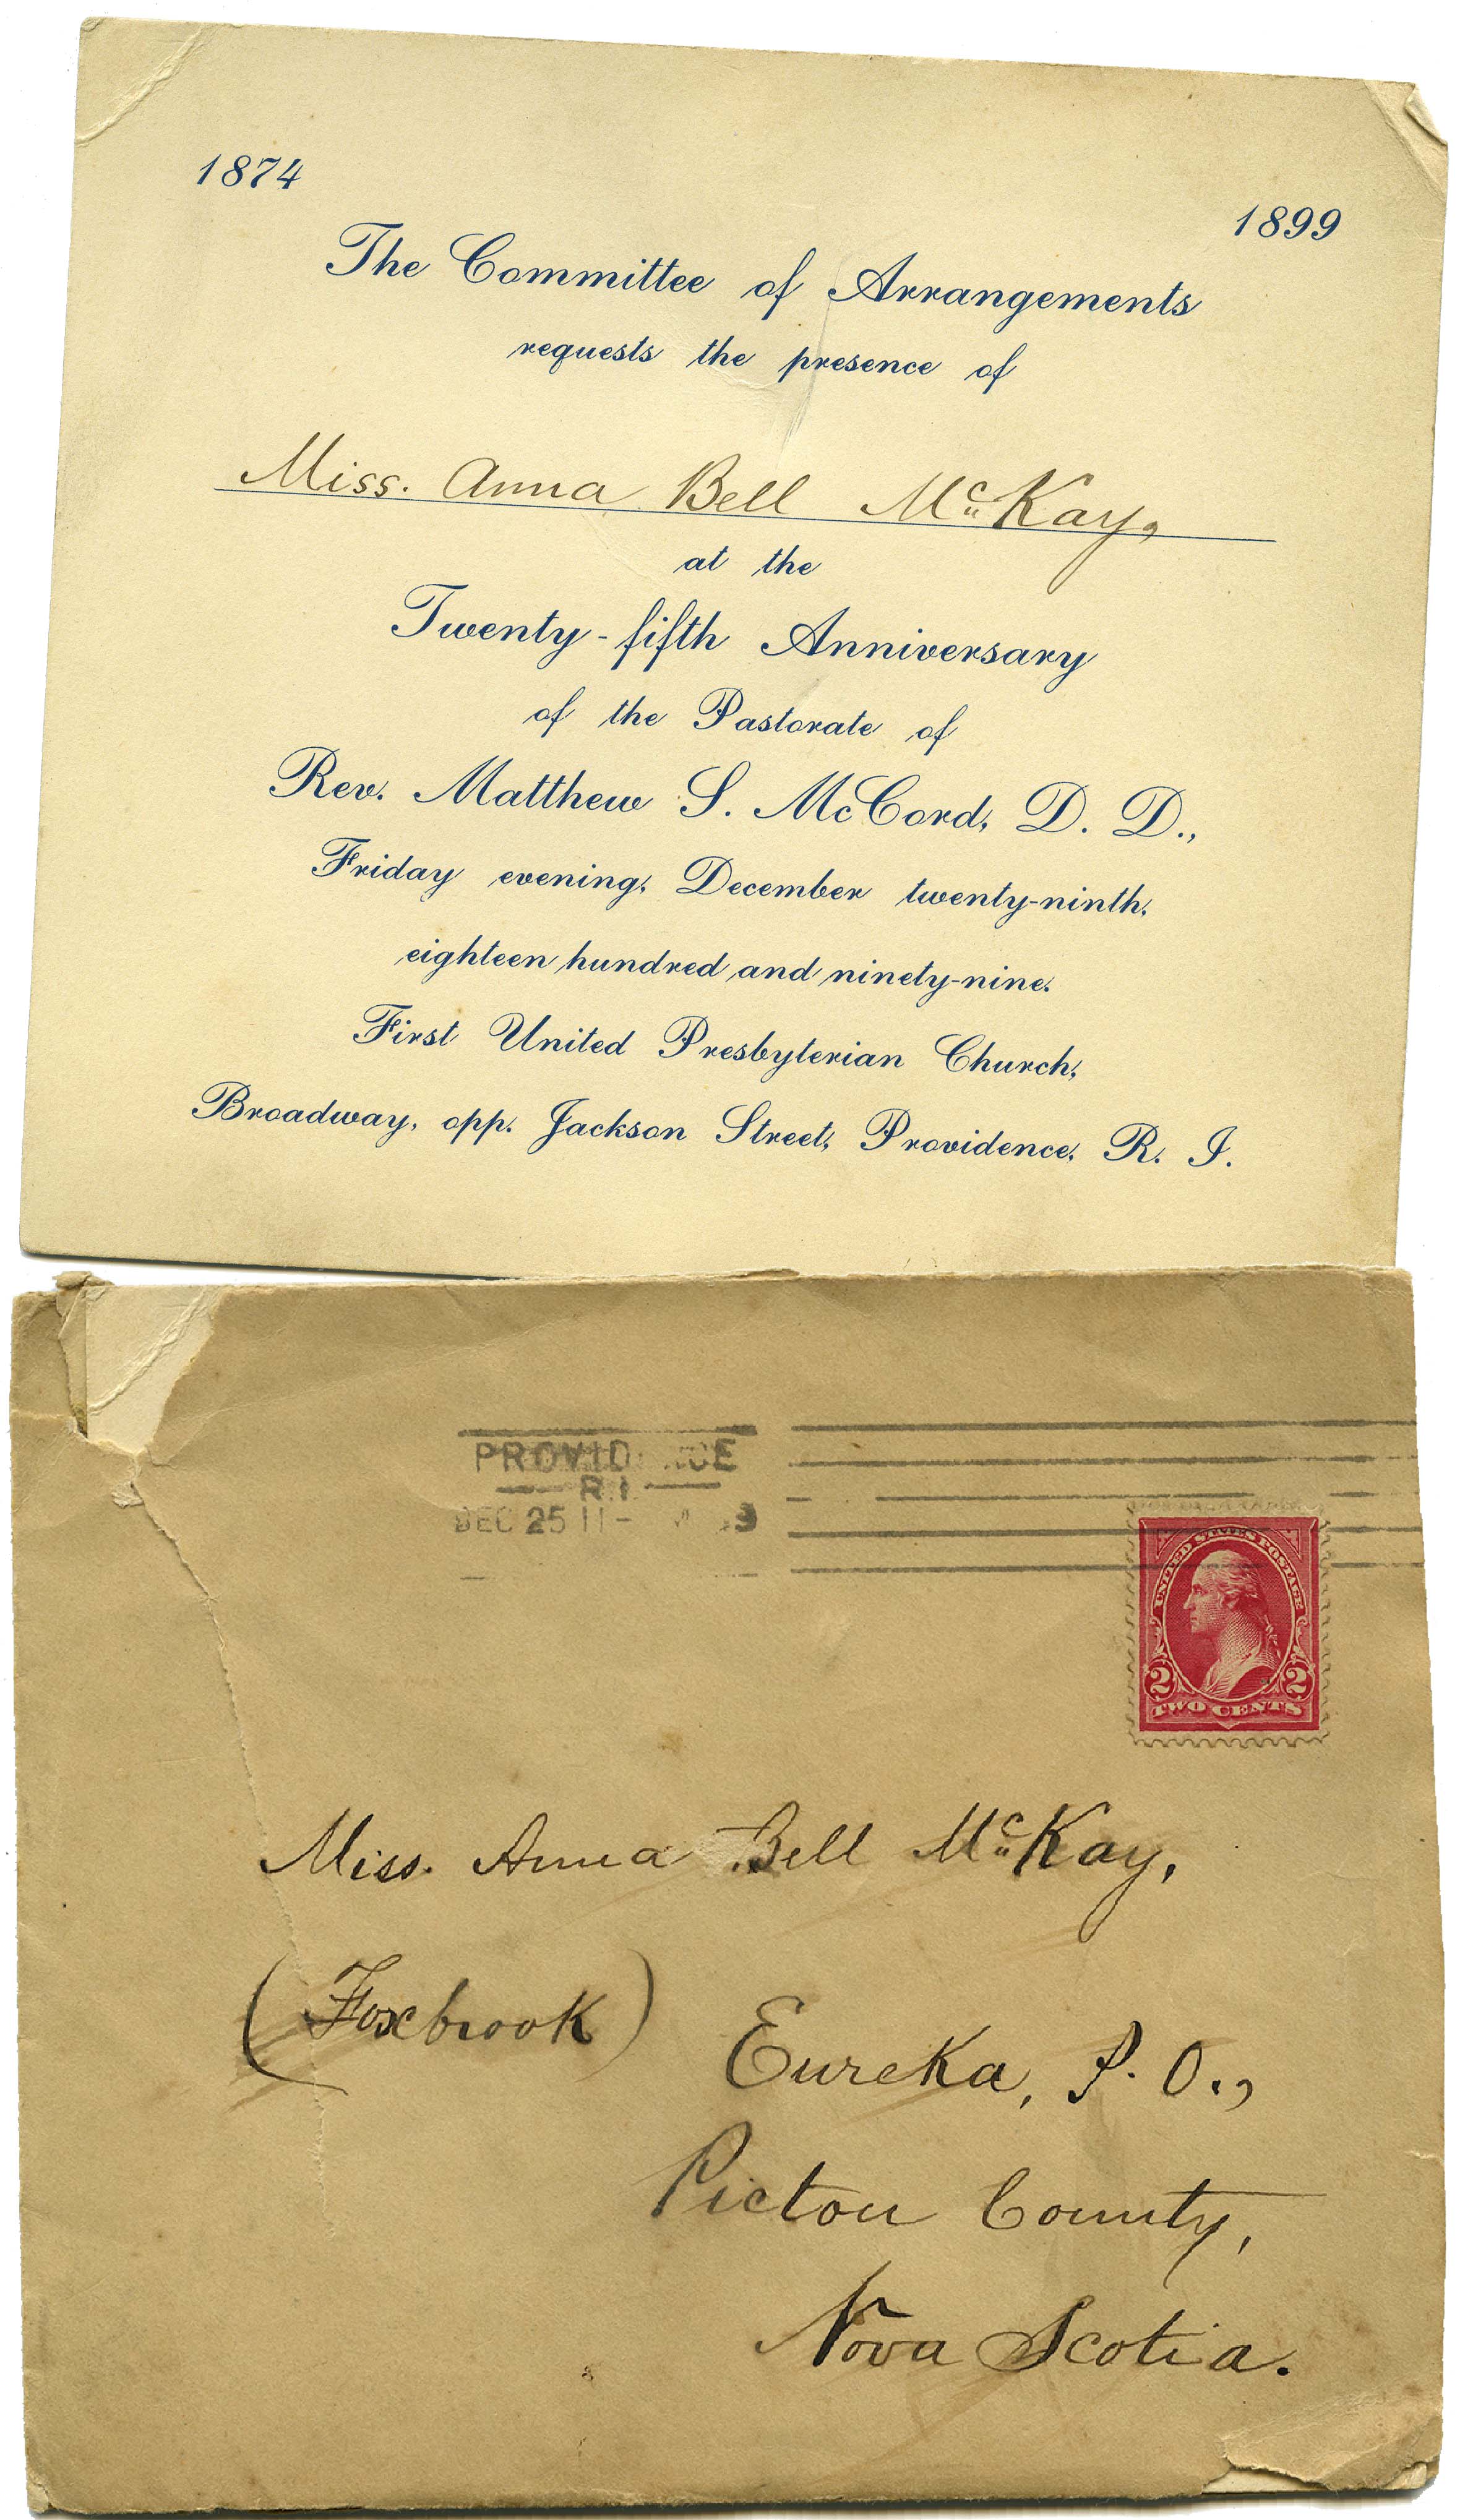 1874
1899
The Committee of Arrangements
requests the presence of
Miss. Anna Bell McKay,
at the
Twenty-fifth Anniversary
of the Pastorate of
Rev. Matthew S. McCord, D. D.,
Friday evening, December twenty-ninth,
eighteen hundred and ninety-nine.
First United Presbyterian Church,
Broadway, opp. Jackson Street, Providence, R. I.
R.I.
DEC 25 11-
UNITED STATES POSTAGE
2 2
TWO CENTS
Miss. Anna Bell McKay,
(Foxbrook)
Eureka, P. O.,
Pictou County,
Nova Scotia.